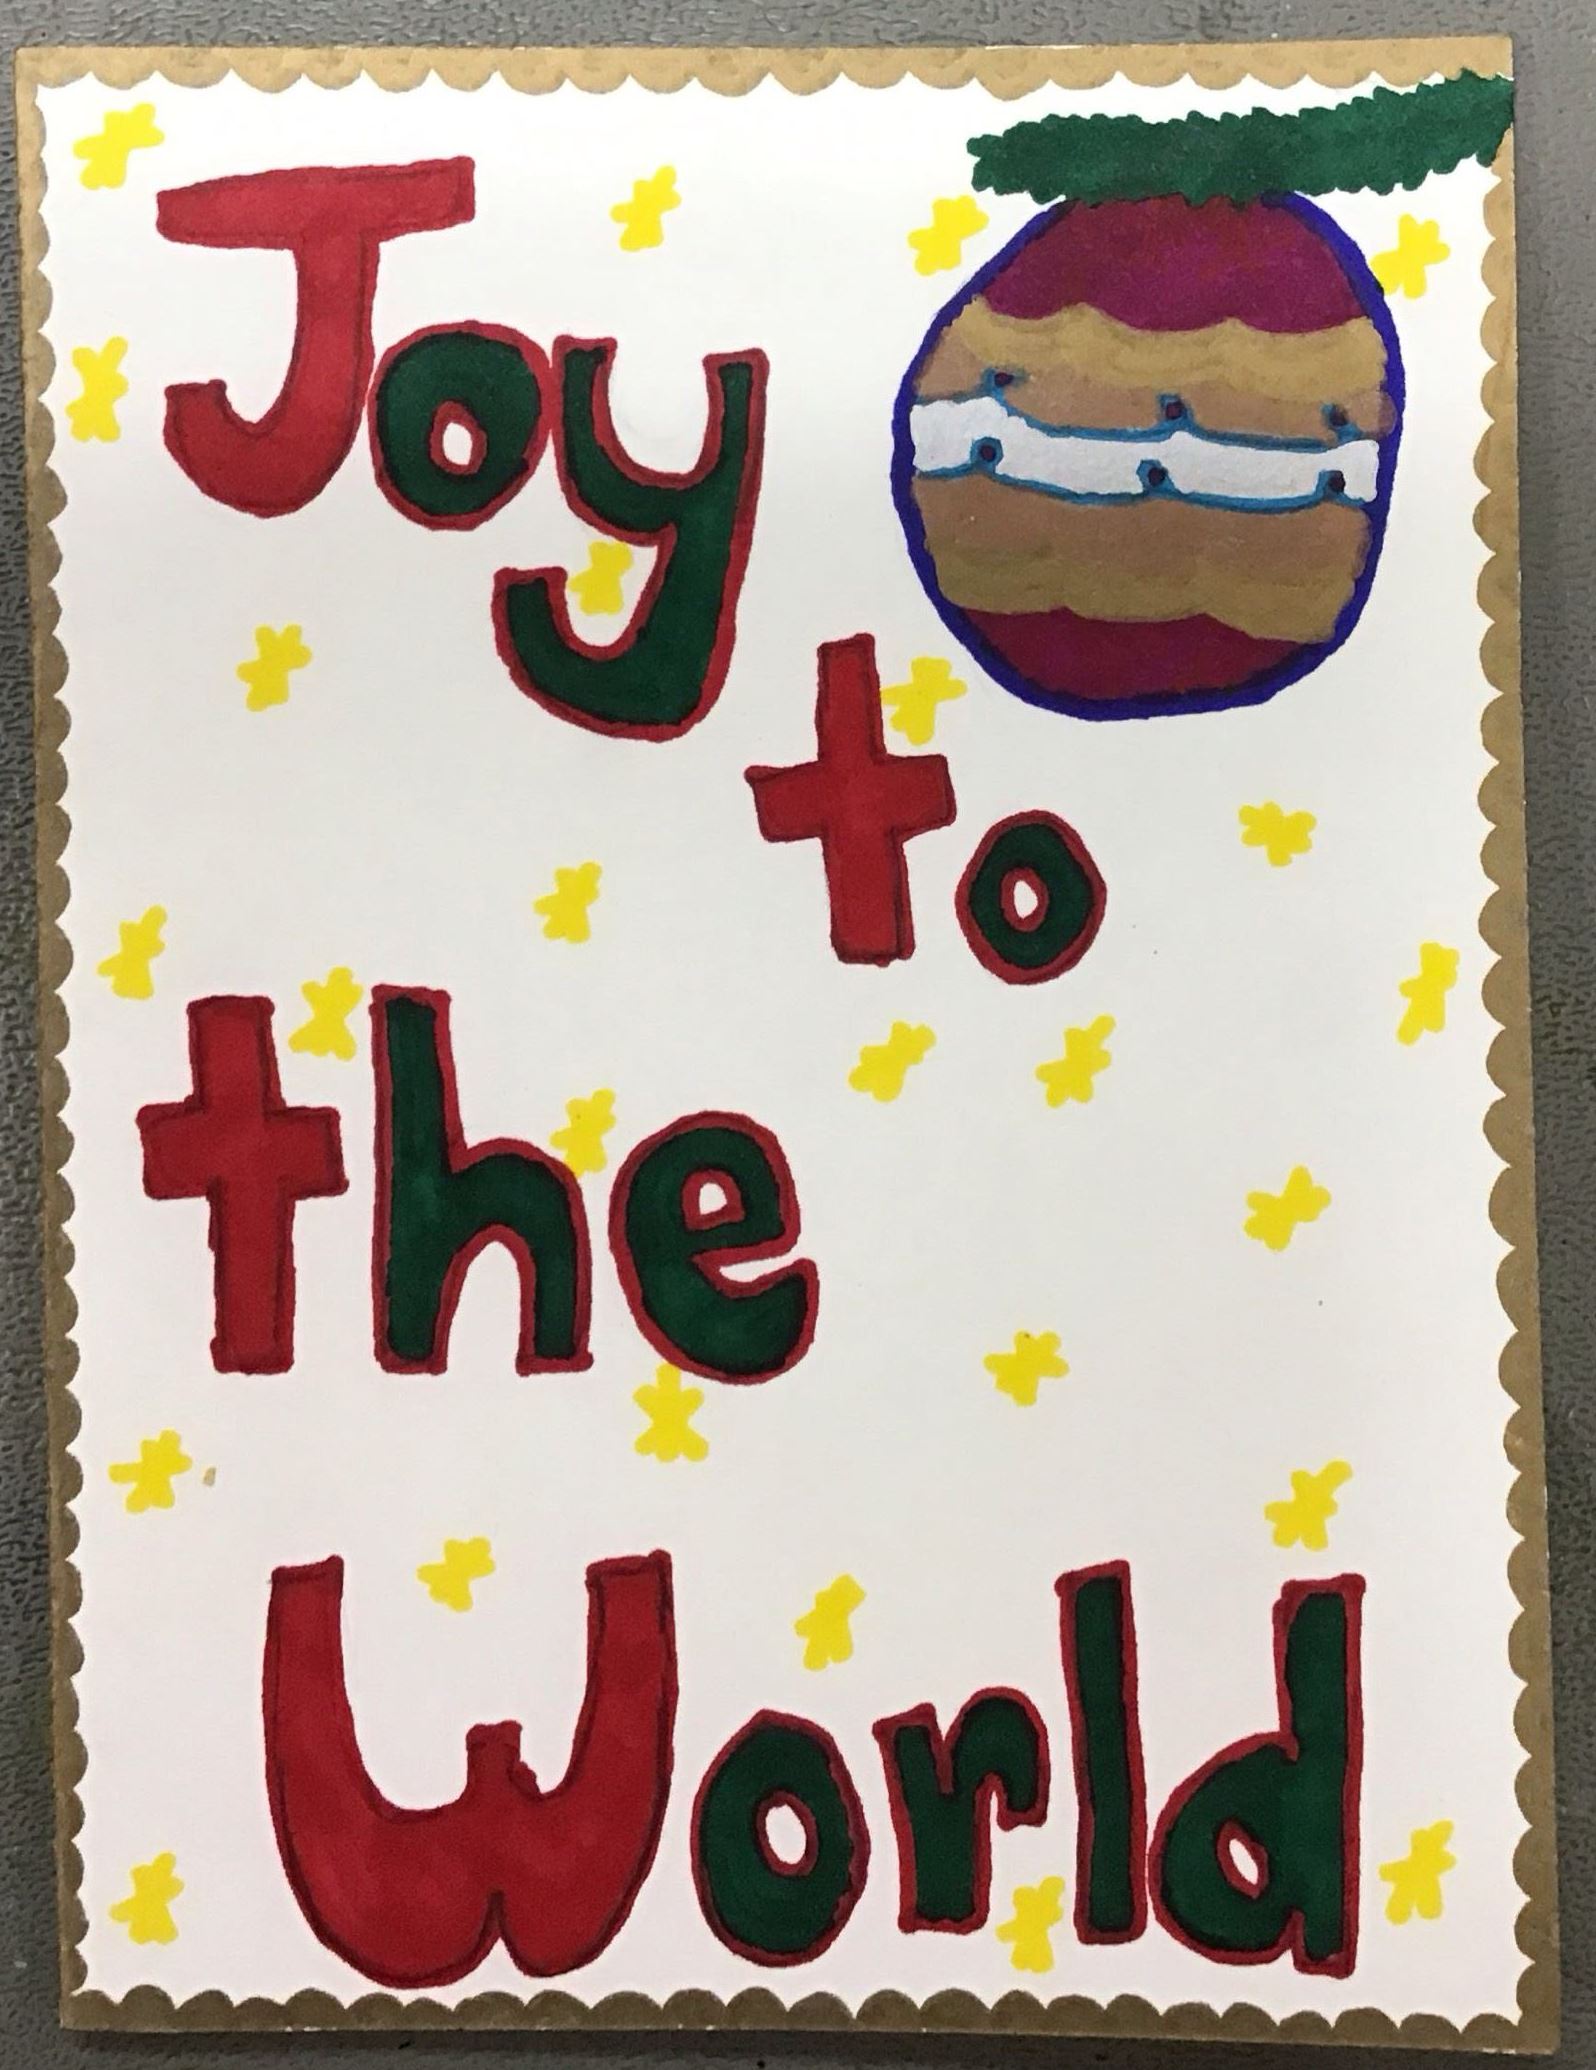 Joy
to
the
World